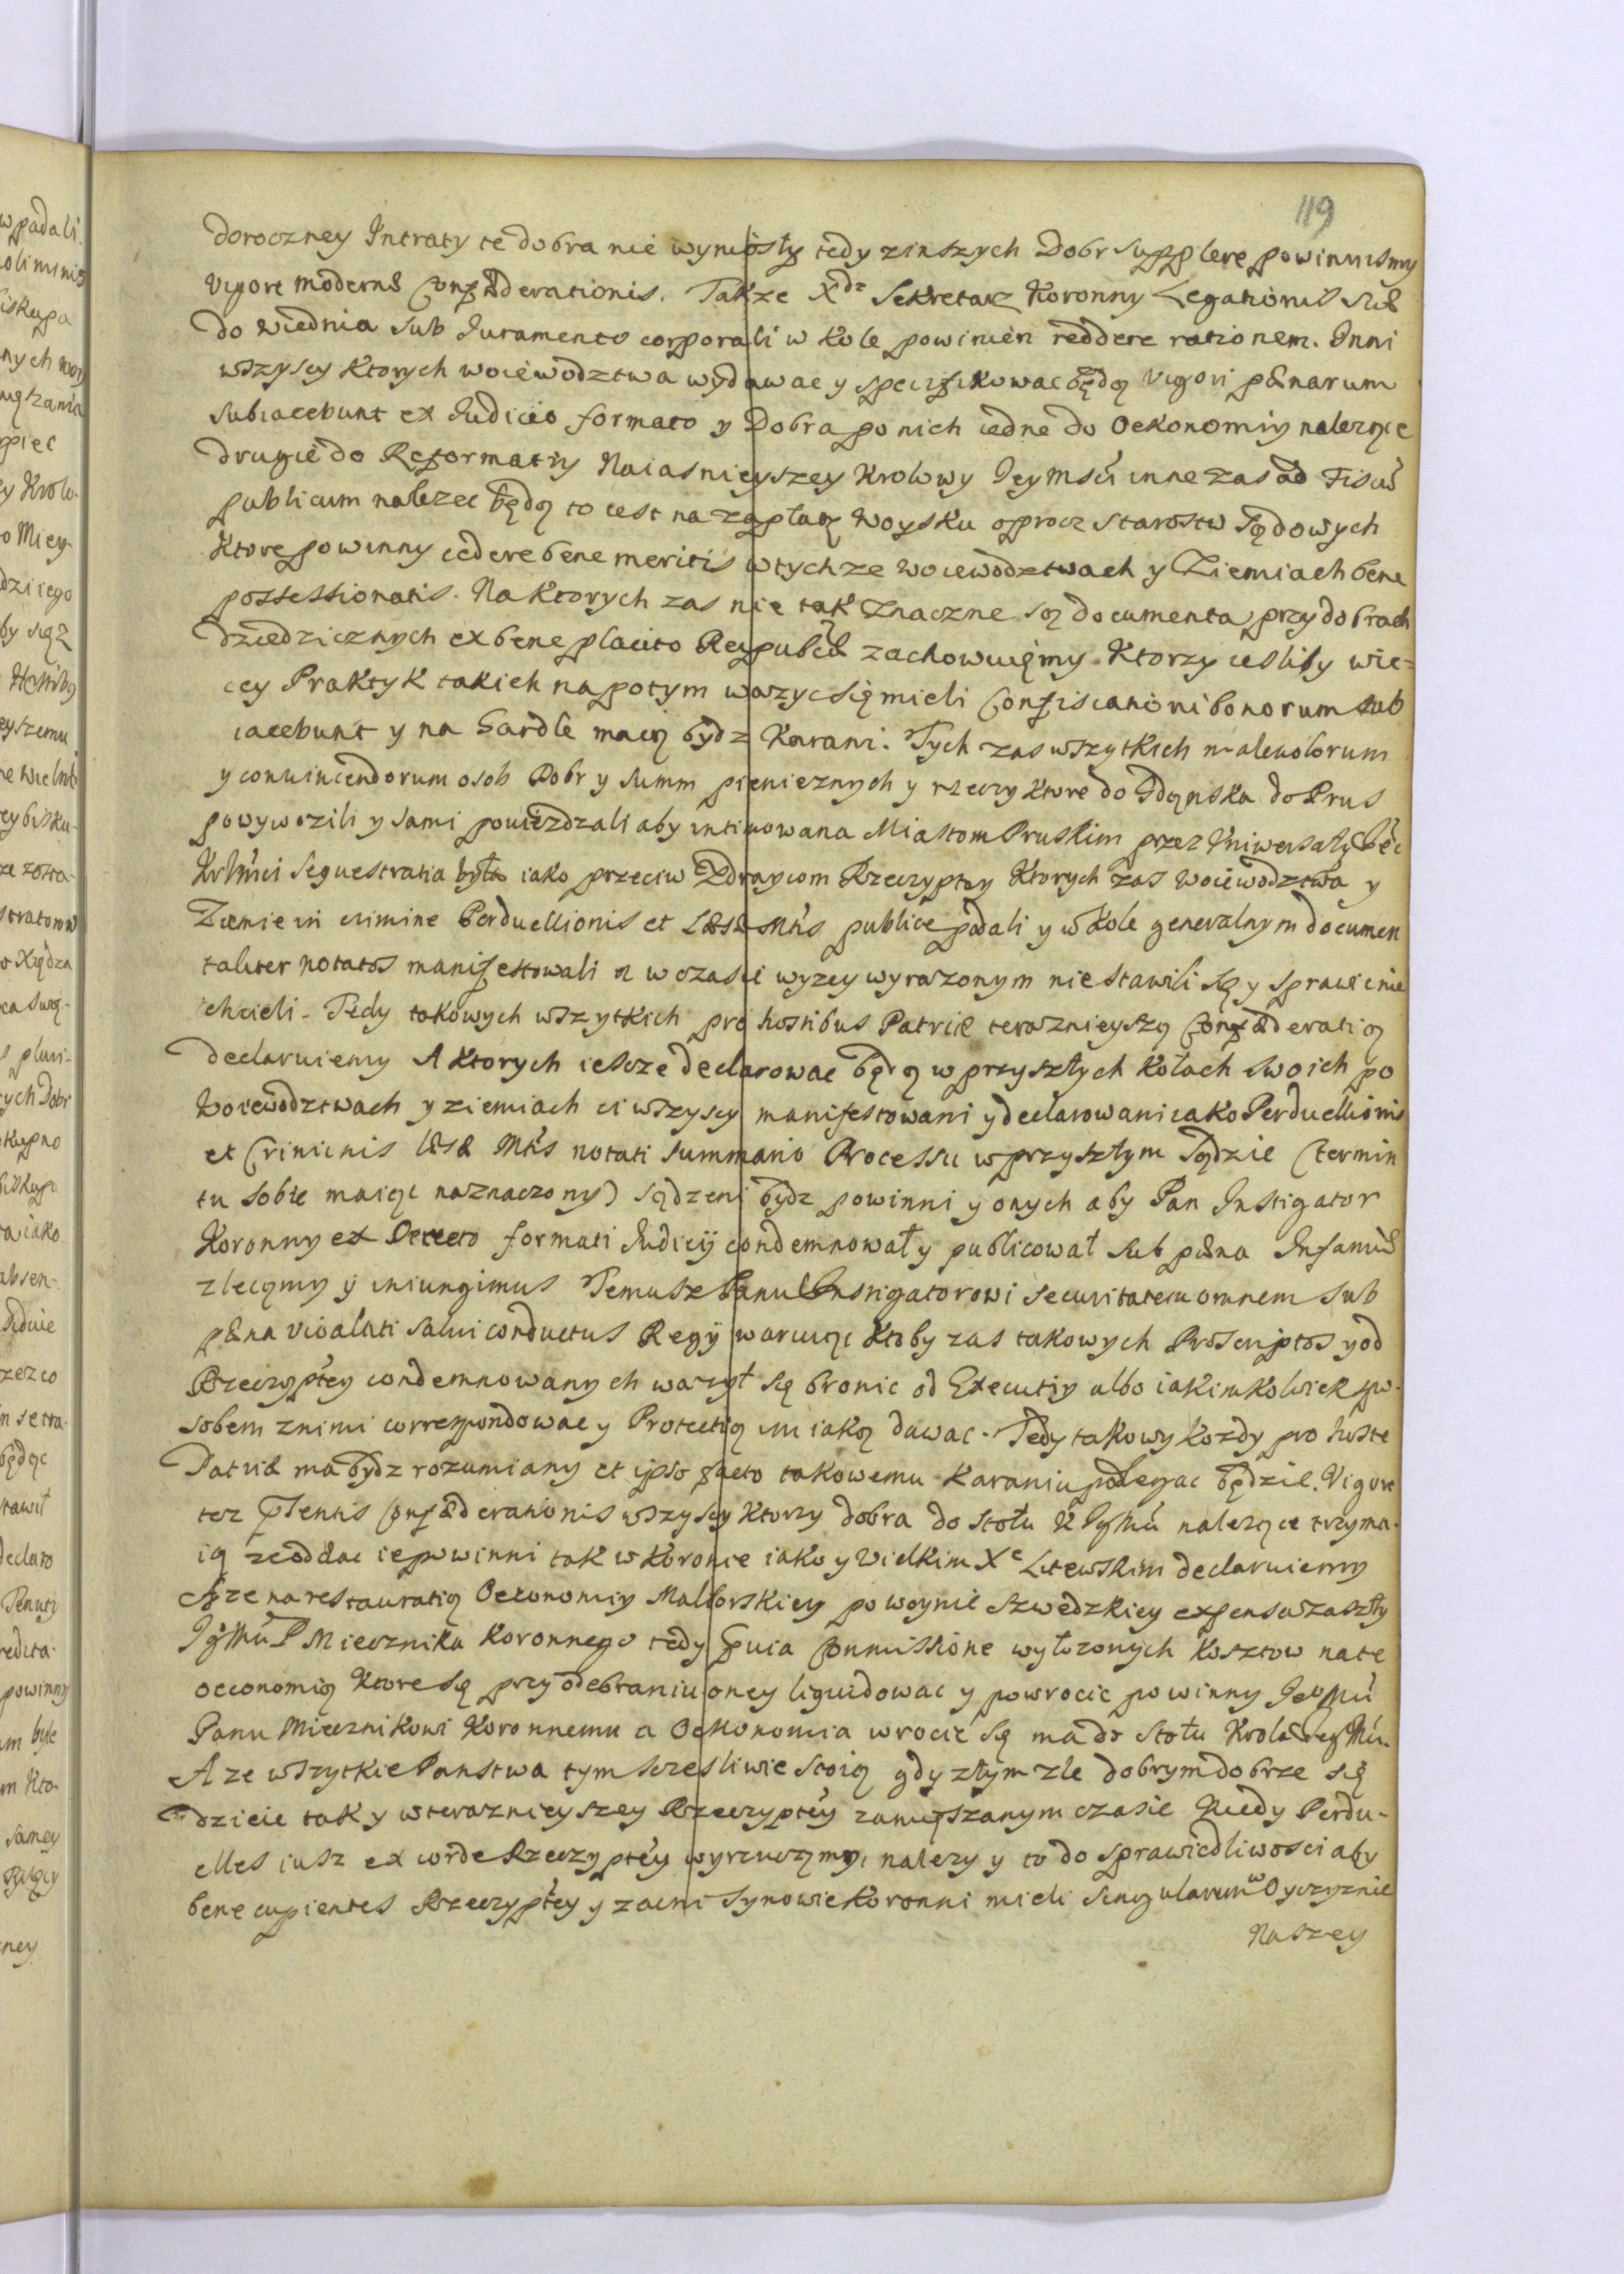 119
doroczney Intraty te dobra nie wyniosły tedy zinszych Dobr supplere powinnismy
vigore modernæ Confæderationis. Takze Xdz Sekretarz Koronny Legationis suæ
do Wiednia sub Juramento corporali w Kole powinien reddere rationem. Inni
wszyscy Ktorych woiewodztwa wydawac y specifikowac będą vigori pænarum
subiacebunt ex Judicio formato y Dobra po nich iedne do Oekonomiy nalezące
drugie do Reformatiy Naiasnieyszey Krolowy Jey Msci inne zas ad Fiscū
publicum nalezec będą to iest na zapłatę Woysku oprocz Starostw Sądowych
Ktore powinny cedere bene meritis wtychze Woiewodztwach y Ziemiach bene
possessionatis. Na Ktorych zas nie tak znaczne są documenta, przy dobrach
dziedzicznych ex bene placito Reypubcæ zachowuięmy. Ktorzy iesliby wię=
cey Praktyk takich napotym wazyc się mieli Confiscationi bonorum sub
iacebunt y na Gardle maią bydz Karani. Tych zas wszytkich malevolorum
y convincendorum osob Dobr y summ pienieznych y rzeczy Ktore do Gdąnska do Prus
powywozili y sami powiezdzali aby intimowana Miastom Pruskim przez Uniwersały
KrMści Sequestratia była iako przeciw Zdraycom Rzeczyptey Ktorych zas Woiewodztwa y
Ziemie in crimine Perduellionis et Læsæ Mtis publice podali y w Kole generalnym documen
taliter notatos manifestowali a w czasie wyzey wyrazonym nie stawili się y sprawic nie
chcieli. Tedy takowych wszytkich pro hostibus Patriæ teraznieyszą Confæderatią
declaruiemy A Ktorych iescze declarowac będą w przyszłych Kołach swoich po
Woiewodztwach y ziemiach ci wszyscy manifestowani y declarowani iako Perduellionis
et Criminis læsæ Mtis notati summario Processu w przyszłym Sądzie (termin
tu sobie maiąc naznaczony) sądzeni bydz powinni y onych aby Pan Instigator
Koronny ex Decreto formati Judicij condemnował y publicował sub pæna Infamiæ
zlecąmy y iniungimus Temusz Panu Instigatorowi securitatem omnem sub
pæna violati salui conductus Regij waruiąc Ktoby zas takowych Proscriptos y od
Rzeczyptey condemnowanych wazył się bronic od Executiy albo iakimkolwiek spo-
sobem znimi correspondowac y Protectią im iaką dawac. Tedy takowy kozdy pro hoste
Patriæ ma bydz rozumiany et ipso facto takowemu Karaniu podlegac będzie. Vigore
tez pntis Confæderationis wszyscy Ktorzy dobra do stołu K JgMci nalezące trzyma-
ią ze oddac ie powinni tak w Koronie iako y Wielkim Xe Litewskim declaruiemy
A ze na restauratią Oeconomiy Malborskiey po woynie Szwedzkiey expensa zaszły
JgMci P Miecznika Koronnego tedy Commissione wyłozonych Kosztow na te
oeconomią Ktore się przy odebraniu oney liquidowac y powrocic powinny JegMci
Panu Miecznikowi Koronnemu a Oekonomia wrocic się ma do Stołu Krola JegMci
A ze wszytkie Panstwa tym sczesliwie stoią gdy złym zle dobrym dobrze się
dzieie tak y w teraznieyszey Rzeczyptey zamięszanym czasie Kiedy Perdu-
elles iusz ex corde Rzeczyptey wyrzucamy, nalezy y to do sprawiedliwosci aby
bene cupientes Rzeczyptey y zacni Synowie Koronni mieli singularem w Oyczyznie
Naszey